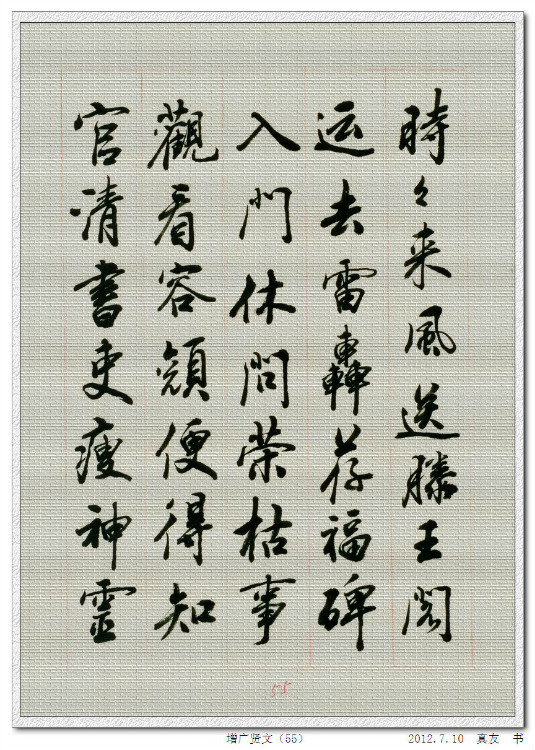 時々来風送滕王阁
运去雷轟荐福碑
入門休問荣枯事
觀看容顔便得知
官清書吏瘦神靈
55
增广贤文（55）
2012.7.10 真友 书